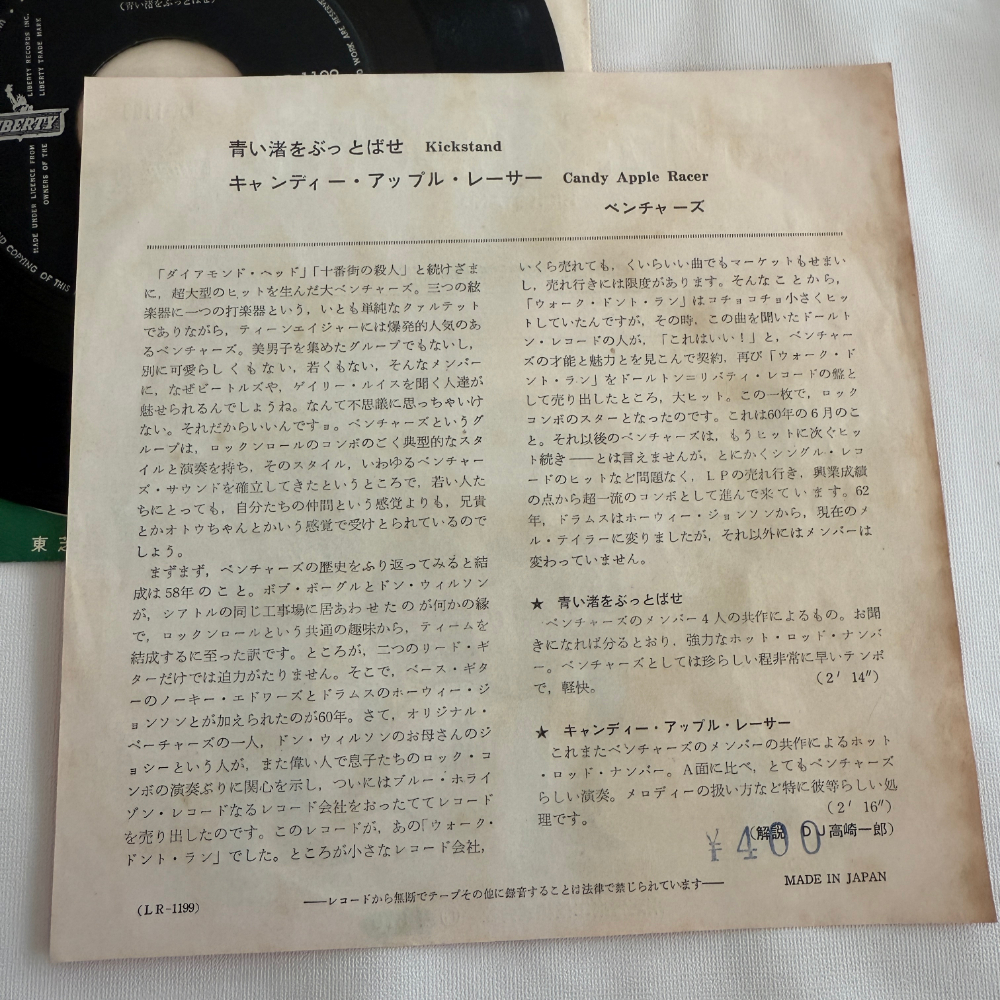 (青い渚をぶっとばせ)
LIBERTY RECORDS INC.
LIBERTY TRADE MARK
LIBERTY
MADE UNDER LICENCE FROM
OWNERS OF THE
COPYING OF THIS
WORK ARE RESERVE
東芝
青い渚をぶっとばせ Kickstand
キャンディー・アップル・レーサー Candy Apple Racer
ベンチャーズ
「ダイアモンド・ヘッド」「十番街の殺人」と続けざま
に，超大型のヒットを生んだ大ベンチャーズ。三つの絃
楽器に一つの打楽器という，いとも単純なクァルテット
でありながら，ティーンエイジャーには爆発的人気のあ
るベンチャーズ。美男子を集めたグループでもないし，
別に可愛らしくもない，若くもない，そんなメンバー
に，なぜビートルズや，ゲイリー・ルイスを聞く人達が
魅せられるんでしょうね。なんて不思議に思っちゃいけ
ない。それだからいいんですョ。ベンチャーズというグ
ループは，ロックンロールのコンボのごく典型的なスタ
イルと演奏を持ち，そのスタイル，いわゆるベンチャー
ズ・サウンドを確立してきたというところで，若い人た
ちにとっても，自分たちの仲間という感覚よりも，兄貴
とかオトウちゃんとかいう感覚で受けとられているので
しょう。
まずまず，ベンチャーズの歴史をふり返ってみると結
成は58年のこと。ボブ・ボーグルとドン・ウィルソン
が，シアトルの同じ工事場に居あわせたのが何かの縁
で，ロックンロールという共通の趣味から，ティームを
結成するに至った訳です。ところが，二つのリード・ギ
ターだけでは迫力がたりません。そこで，ベース・ギタ
ーのノーキー・エドワーズとドラムスのホーウィー・ジ
ョンソンとが加えられたのが60年。さて，オリジナル・
ベーチャーズの一人，ドン・ウィルソンのお母さんのジ
ョシーという人が，また偉い人で息子たちのロック・コ
ンボの演奏ぶりに関心を示し，ついにはブルー・ホライ
ゾン・レコードなるレコード会社をおったててレコード
を売り出したのです。このレコードが，あの「ウォーク・
ドント・ラン」でした。ところが小さなレコード会社，
いくら売れても，くいらいい曲でもマーケットもせまい
し，売れ行きには限度があります。そんなことから，
「ウォーク・ドント・ラン」はコチョコチョ小さくヒッ
トしていたんですが，その時，この曲を聞いたドールト
ン・レコードの人が，「これはいい！」と，ベンチャー
ズの才能と魅力とを見こんで契約，再び「ウォーク・ド
ント・ラン」をドールトン＝リバティ・レコードの盤と
して売り出したところ，大ヒット。この一枚で，ロック
コンボのスターとなったのです。これは60年の6月のこ
と。それ以後のベンチャーズは，もうヒットに次ぐヒッ
ト続き――とは言えませんが，とにかくシングル・レコ
ードのヒットなど問題なく，LPの売れ行き，興業成績
の点から超一流のコンボとして進んで来ています。62
年，ドラムスはホーウィー・ジョンソンから，現在のメ
ル・テイラーに変りましたが，それ以外にはメンバーは
変わっていません。
★ 青い渚をぶっとばせ
ベンチャーズのメンバー4人の共作によるもの。お聞
きになれば分るとおり，強力なホット・ロッド・ナンバ
ー。ベンチャーズとしては珍らしい程非常に早いテンポ
で，軽快。 (2′ 14″)
★ キャンディー・アップル・レーサー
これまたベンチャーズのメンバーの共作によるホット
・ロッド・ナンバー。A面に比べ，とてもベンチャーズ
らしい演奏。メロディーの扱い方など特に彼等らしい処
理です。 (2′ 16″)
(解説 DJ高崎一郎)
¥400
MADE IN JAPAN
――レコードから無断でテープその他に録音することは法律で禁じられています――
(LR-1199)